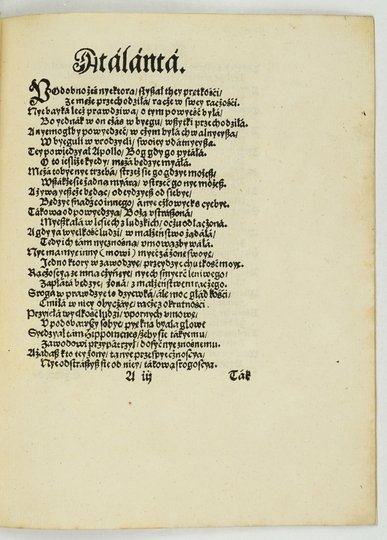 Atálántá.
Podobnożeś nyektora / słyszał they prętkośći /
Że męże przechodziłá / ráczże w swey rączośći.
Nye bayká leċż prawdźiwa / o tym powyeść byłá /
Bo yednák w on cżás w byegu / wszytki przechodźiłá.
A nye mogłby powyedzyeć / w cżym byłá chwálnyeyssa /
W byegu li w vrodzye li / swoiey vdátnyeyssa.
Tey powyedzyał Apollo / Bog gdy go pytáłá.
O to ieśliże kyedy / mężá będzye myáłá.
Mężá tobye nye trzebá / strzeż sie go gdzye możesz /
Wszákże sie żadną myárą / vstrzec go nye możesz.
A żywą yeszcże będąc / obeydzyesz od siebye /
Będzye snadź co innego / á nye cżłowyek s cyebye.
Tákową odpowyedzyą / Bożą vstrászona /
Myeszkáłá w lesiech z ludzkich / ocżu odłącżona.
A gdy ya wyelkość ludzi / w małżeństwo żądáłá /
Tedy ich tám nyeznośną / vmową zbywáłá.
Nye ma mye inny (mowi) myeć zá żonę swoyę /
Jedno ktory w zawodzye / przeydzye chutkość moyę.
Rącżoścyą ze mną cżyńcye / nyech śmyerć leniwego /
Zapłátá będzye / żoná / z małżeństwem rącżego.
Sroga w prawdzye is dzyewká / ále moc gładkości /
Ćmiłá w niey obycżáye / rácżey z okrutności.
Przyszłá wyelkość ludzi / vpornych w mowę /
Vpodobawszy sobye / pyękną byáłą głowę
Syedzyał tám Hippomenes / żeby sie tákyemu /
Záwodowi przypátrzył / dosyć nyeznośnemu.
A żądasz kto tey żony / tá nyeprzespyecżnoścyą /
Nye odstrászysz sie od niey / tákową srogoścyą.
A iij
Ták